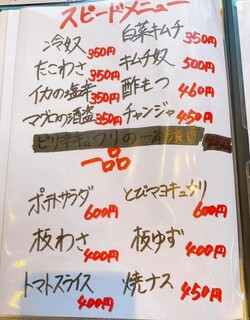 スピードメニュー
冷奴 350円 白菜キムチ 350円
たこわさ 350円 キムチ奴 500円
イカの塩辛 350円 酢もつ 460円
マグロの酒盗 350円 チャンジャ 450円
ピリ辛キュウリの一本漬
一品
ポテトサラダ 600円 とびマヨキュウリ 600円
板わさ 400円 板ゆず 400円
トマトスライス 400円 焼ナス 450円